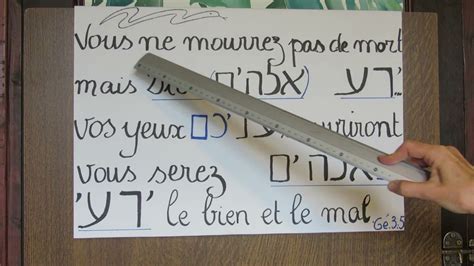 Vous ne mourrez pas de mort
mais (אלהים) ידע
vos yeux
vous serez
ידעי le bien et le mal
Gé.3.5